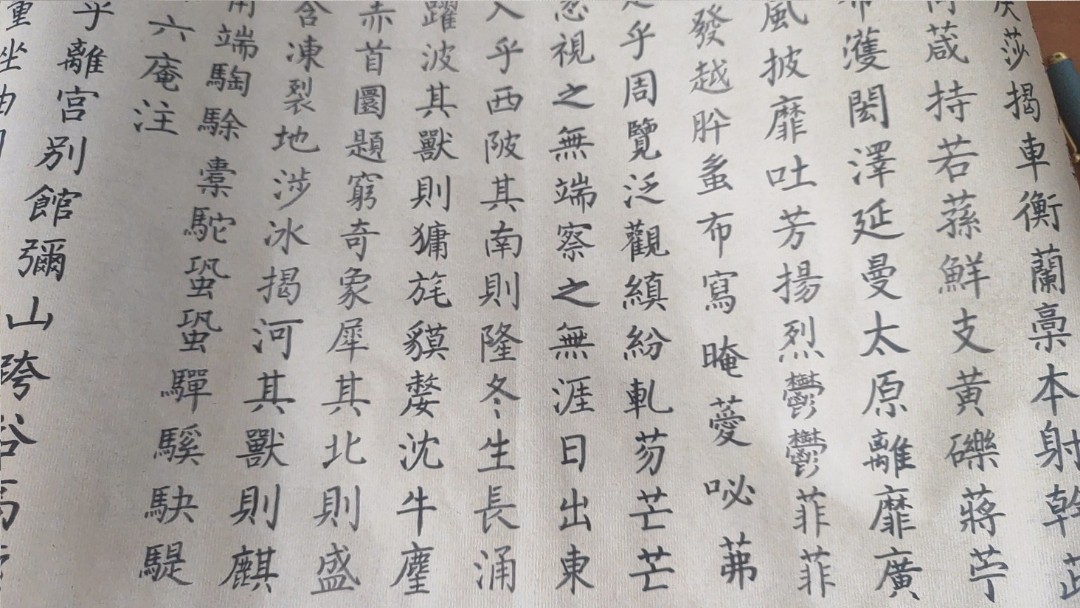 莎揭車衡蘭槀本射幹
葴持若蓀鮮支黃礫蔣苧
布濩閎澤延曼太原離靡廣
風披靡吐芳揚烈鬱鬱菲菲
發越肸蚃布寫晻薆咇茀
乎周覽泛觀縝紛軋芴芒芒
忽視之無端察之無涯日出東
入乎西陂其南則隆冬生長涌
躍波其獸則㺎旄貘嫠沈牛麈
赤首圜題窮奇象犀其北則盛
含凍裂地涉冰揭河其獸則麒
端騊駼橐駝蛩蛩驒騱駃騠
六庵注
乎離宮別館彌山跨谷高
重坐曲